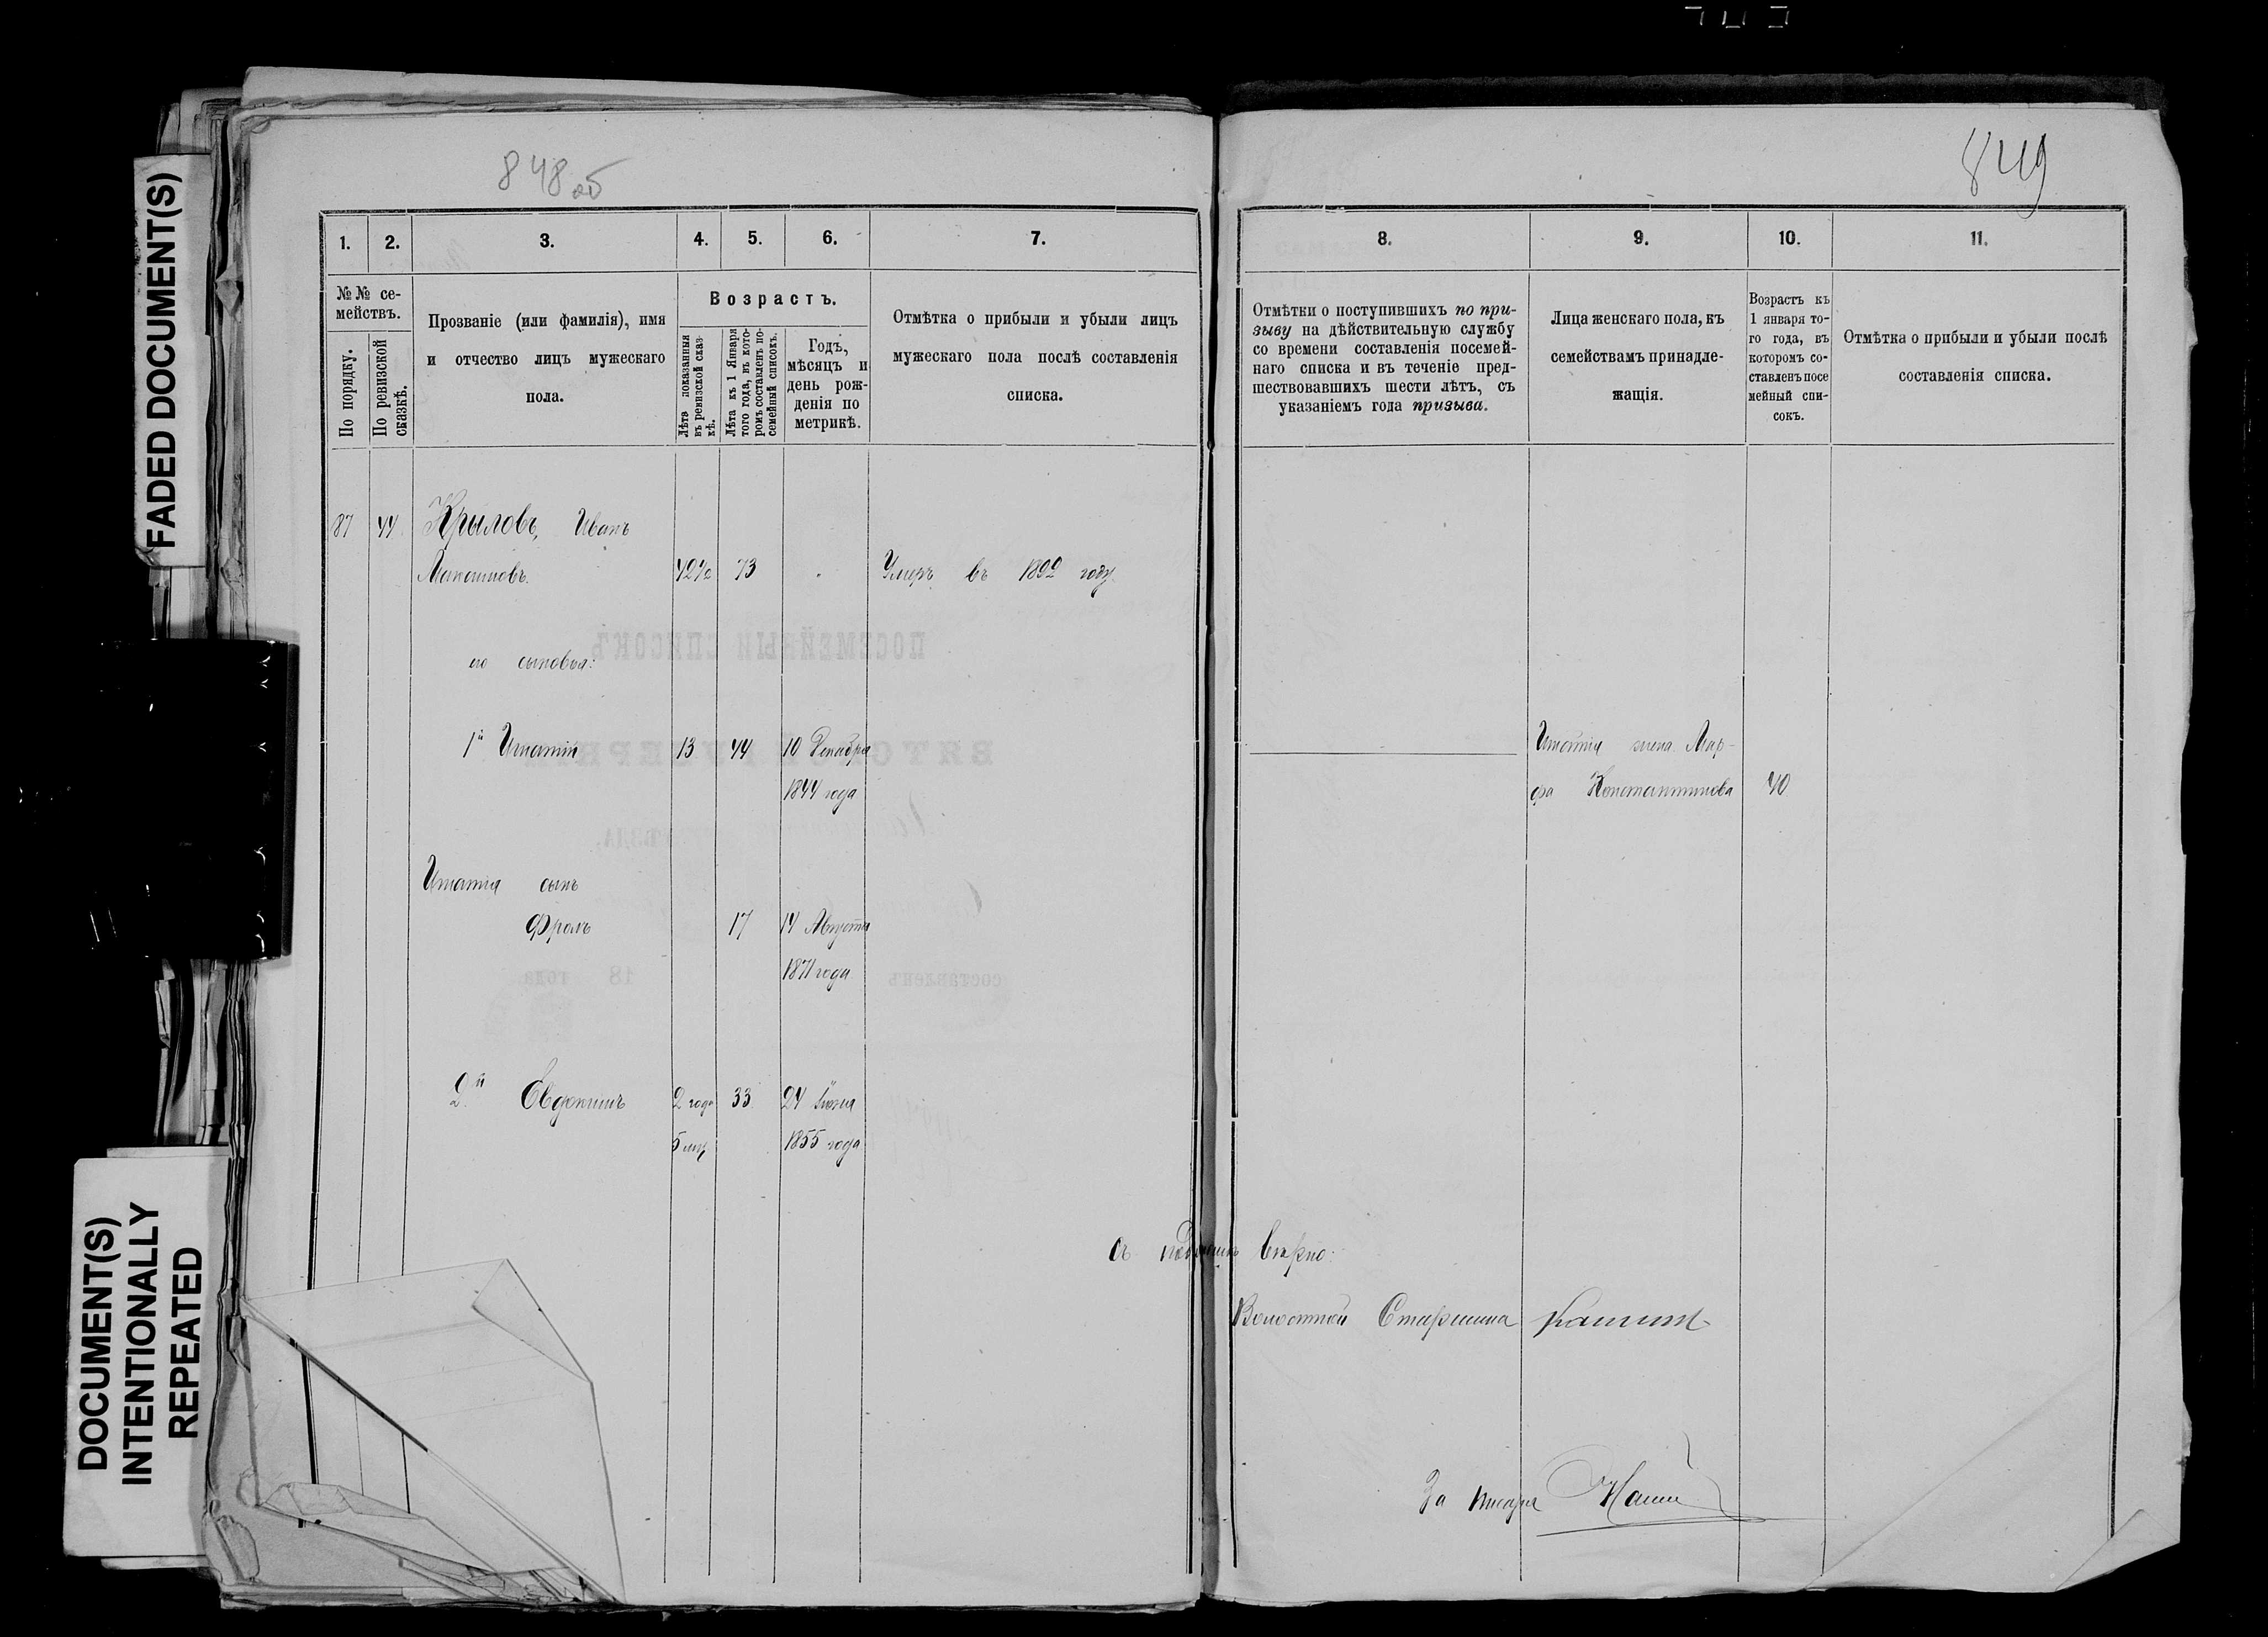 FADED DOCUMENT(S)
DOCUMENT(S)
INTENTIONALLY
REPEATED
848 об
1. 2. 3. 4. 5. 6. 7.
№№ се-
мействъ.
По порядку.
По ревизской
сказкѣ.
Прозваніе (или фамилія), имя
и отчество лицъ мужескаго
пола.
Возрастъ.
Лѣта показанныя
въ ревизской сказ-
кѣ.
Лѣта къ 1 Января
того года, въ кото-
ромъ составленъ по-
семейный списокъ.
Годъ,
мѣсяцъ и
день рож-
денія по
метрикѣ.
Отмѣтка о прибыли и убыли лицъ
мужескаго пола послѣ составленія
списка.
87 44 Крыловъ, Иванъ
Максимовъ. 42½ 73 Умеръ въ году
его сыновья:
1й Игнатій 13 44 10 Декабря
1844 года
Игнатія сынъ
Фролъ 17 14 Августа
1871 года
2й Евдокимъ 2 года 33 24 Іюня
5 мц 1855 года
849
8. 9. 10. 11.
Отмѣтки о поступившихъ по при-
зыву на дѣйствительную службу
со времени составленія посемей-
наго списка и въ теченіе пред-
шествовавшихъ шести лѣтъ, съ
указаніемъ года призыва.
Лица женскаго пола, къ
семействамъ принадле-
жащія.
Возрастъ къ
1 января то-
го года, въ
которомъ со-
ставленъ посе
мейный спи-
сокъ.
Отмѣтка о прибыли и убыли послѣ
составленія списка.
Игнатія жена Мар-
фа Константинова 40
Съ подлиннымъ вѣрно:
Волостной Старшина
За Писаря